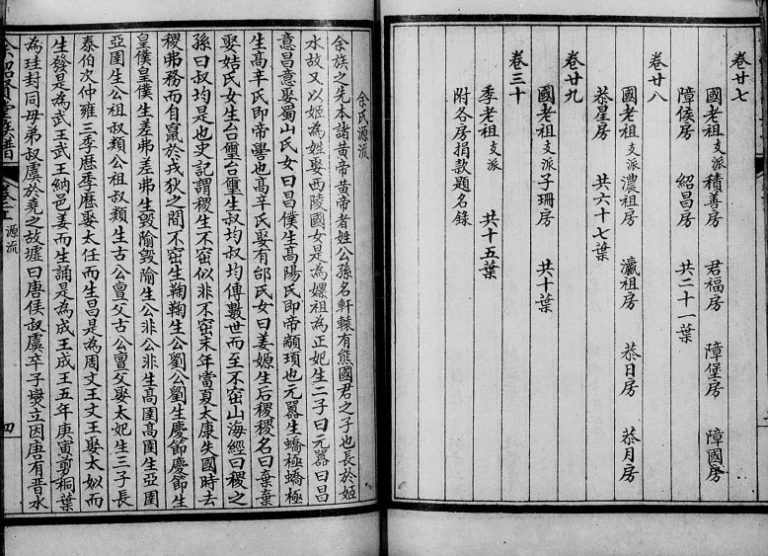 卷廿七
國老祖支派積善房 君福房 障堡房 障國房
障侯房 紹昌房 共二十一葉
卷廿八
國老祖支派濃祖房 瀛祖房 恭日房 恭月房
恭星房 共六十七葉
卷廿九
國老祖支派子珊房 共十葉
卷三十
季老祖支派 共十五葉
附各房捐款題名錄
余氏源流
余族之先本諸黃帝黃帝者姓公孫名軒轅有熊國君之子也長於姬
水故又以姬為姓娶西陵國女是為嫘祖為正妃生二子曰元囂曰昌
意昌意娶蜀山氏女曰昌僕生高陽氏即帝顓頊也元囂生蟜極蟜極
生高辛氏即帝嚳也高辛氏娶有邰氏女曰姜嫄生后稷稷名曰棄棄
娶姞氏女生台璽台璽生叔均叔均傳數世而至不窋山海經曰稷之
孫曰叔均是也史記謂稷生不窋似非不窋末年當夏太康失國時去
稷弗務而自竄於戎狄之間不窋生鞠鞠生公劉公劉生慶節慶節生
皇僕皇僕生差弗差弗生毀隃毀隃生公非公非生高圉高圉生亞圉
亞圉生公祖叔類公祖叔類生古公亶父古公亶父娶太妃生三子長
泰伯次仲雍三季歷季歷娶太任而生昌是為周文王文王娶太姒而
生發是為武王武王納邑姜而生誦是為成王成王五年庚寅剪桐葉
為珪封同母弟叔虞於堯之故墟曰唐侯叔虞卒子燮立因唐有晋水
源流
四